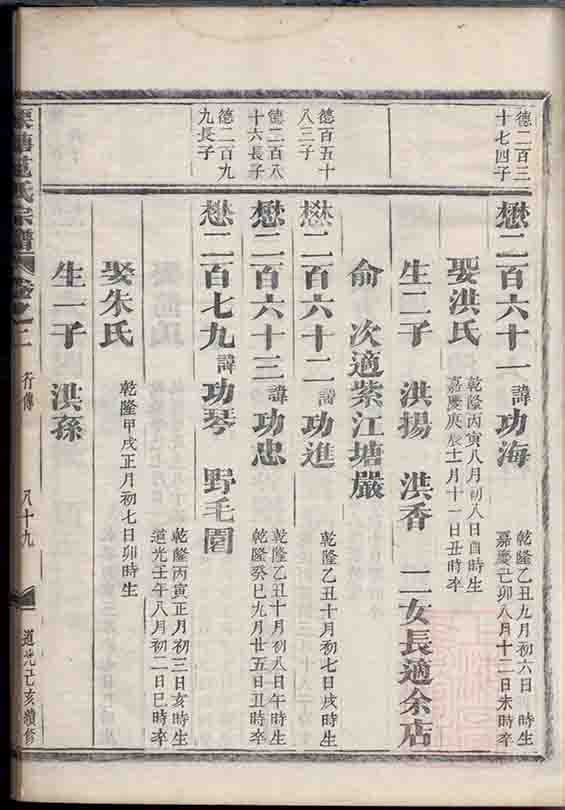 德二百三
十七四子
懋二百六十一 諱功海 乾隆乙丑九月初六日 時生
嘉慶己卯八月十二日未時卒
娶洪氏 乾隆丙寅八月初八日酉時生
嘉慶庚辰十一月十一日丑時卒
生二子 洪揚 洪香 二女長適余店
俞 次適紫江塘嚴
德百五十
八三子
懋二百六十二 諱功進 乾隆乙丑十月初七日戌時生
德二百八
十六長子
懋二百六十三 諱功忠 乾隆乙丑十月初八日午時生
乾隆癸巳九月廿五日丑時卒
德二百九
九長子
懋二百七九 諱功琴 野毛園 乾隆丙寅正月初三日亥時生
道光壬午八月初二日巳時卒
娶朱氏 乾隆甲戌正月初七日卯時生
生一子 洪孫
氏宗譜 卷之二 行傳 八十九 道光己亥續修